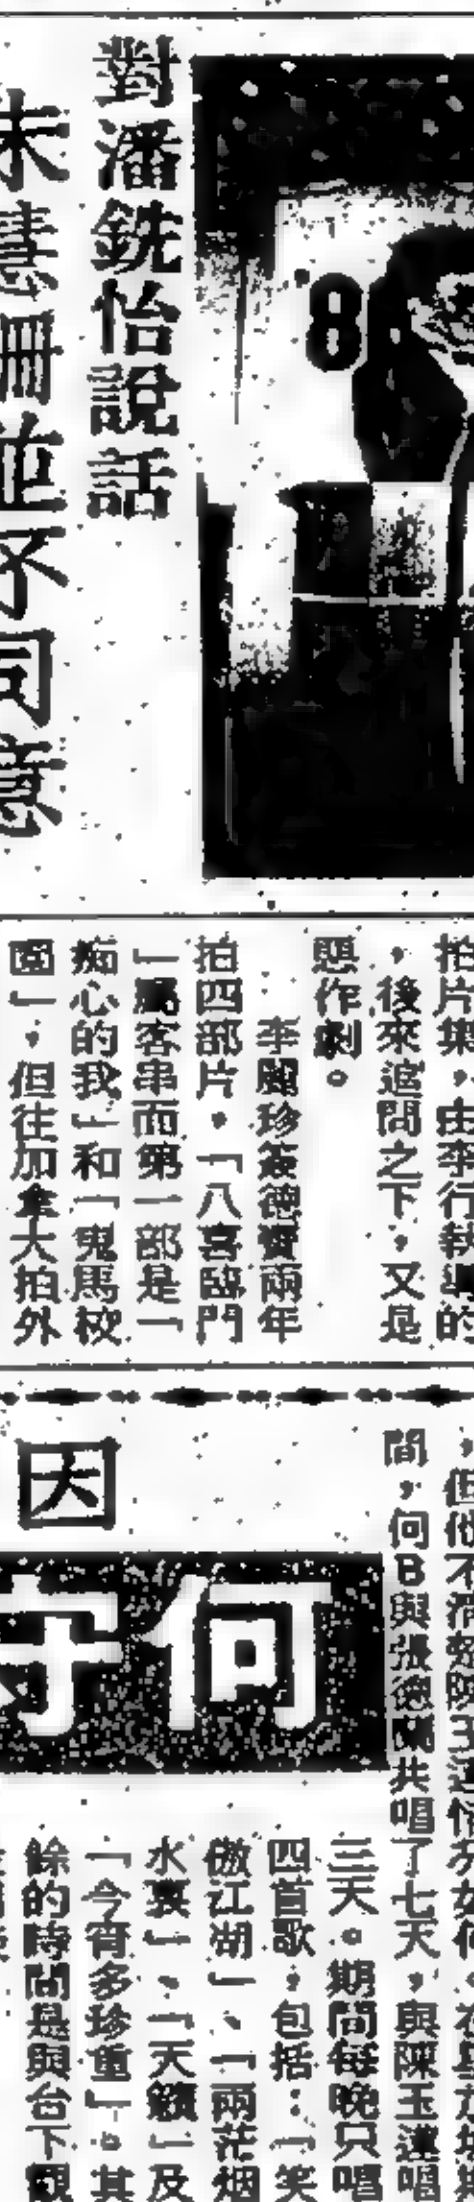 對潘銑怡說話
慧珊並不同意
'8
拍片集,由李行執導的
,後來追問之下,又是
惡作劇。
李麗珍簽德寶兩年
拍四部片,「八喜臨門
」屬客串而第一部是「
痴心的我」和「鬼馬校
園」,但往加拿大拍外
間,何B與張德蘭共唱了七天,與陳玉蓮唱
三天。期間每晚只唱
四首歌,包括:「笑
傲江湖」、「兩茫烟
水裏」、「天籟」及
「今宵多珍重」。其
餘的時間是與台下觀
因
何守